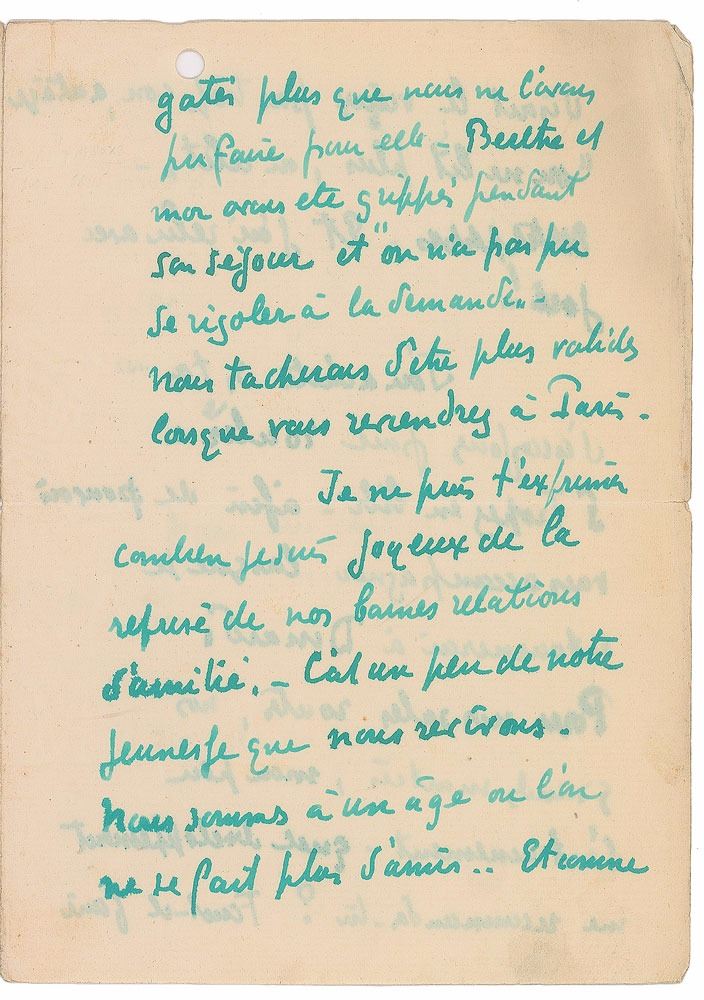 gatés plus que nous ne l'avons
pu faire pour elle - Berthe et
moi avons ete grippés pendant
son séjour et "on n'a pas pu
se rigoler à la demande".-
nous tacherons d'etre plus valides
lorsque vous reviendrez à Paris.
Je ne puis t'exprimer
combien je suis joyeux de la
de nos bonnes relations
d'amitié. - C'est un peu de notre
jeunesse que nous revivons.
Nous sommes à un âge ou l'on
ne se fait plus d'amis.. Et comme